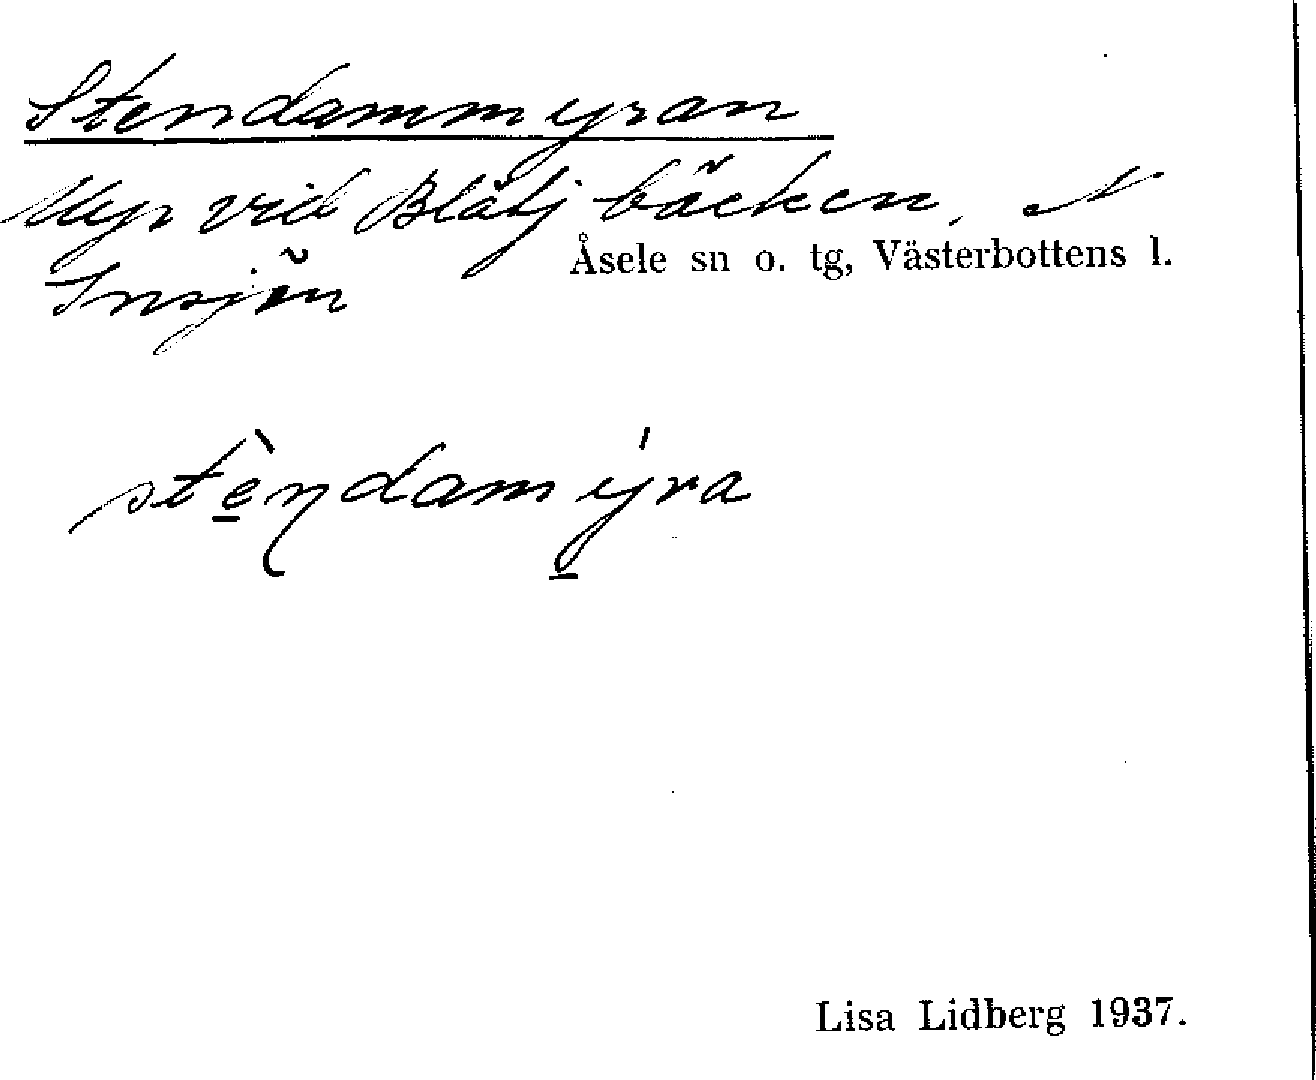 Stendammyran
Myr vid Blåtjbäcken, N
Åsele sn o. tg, Västerbottens l.
Insjön
stèn̠damýra
Lisa Lidberg 1937.